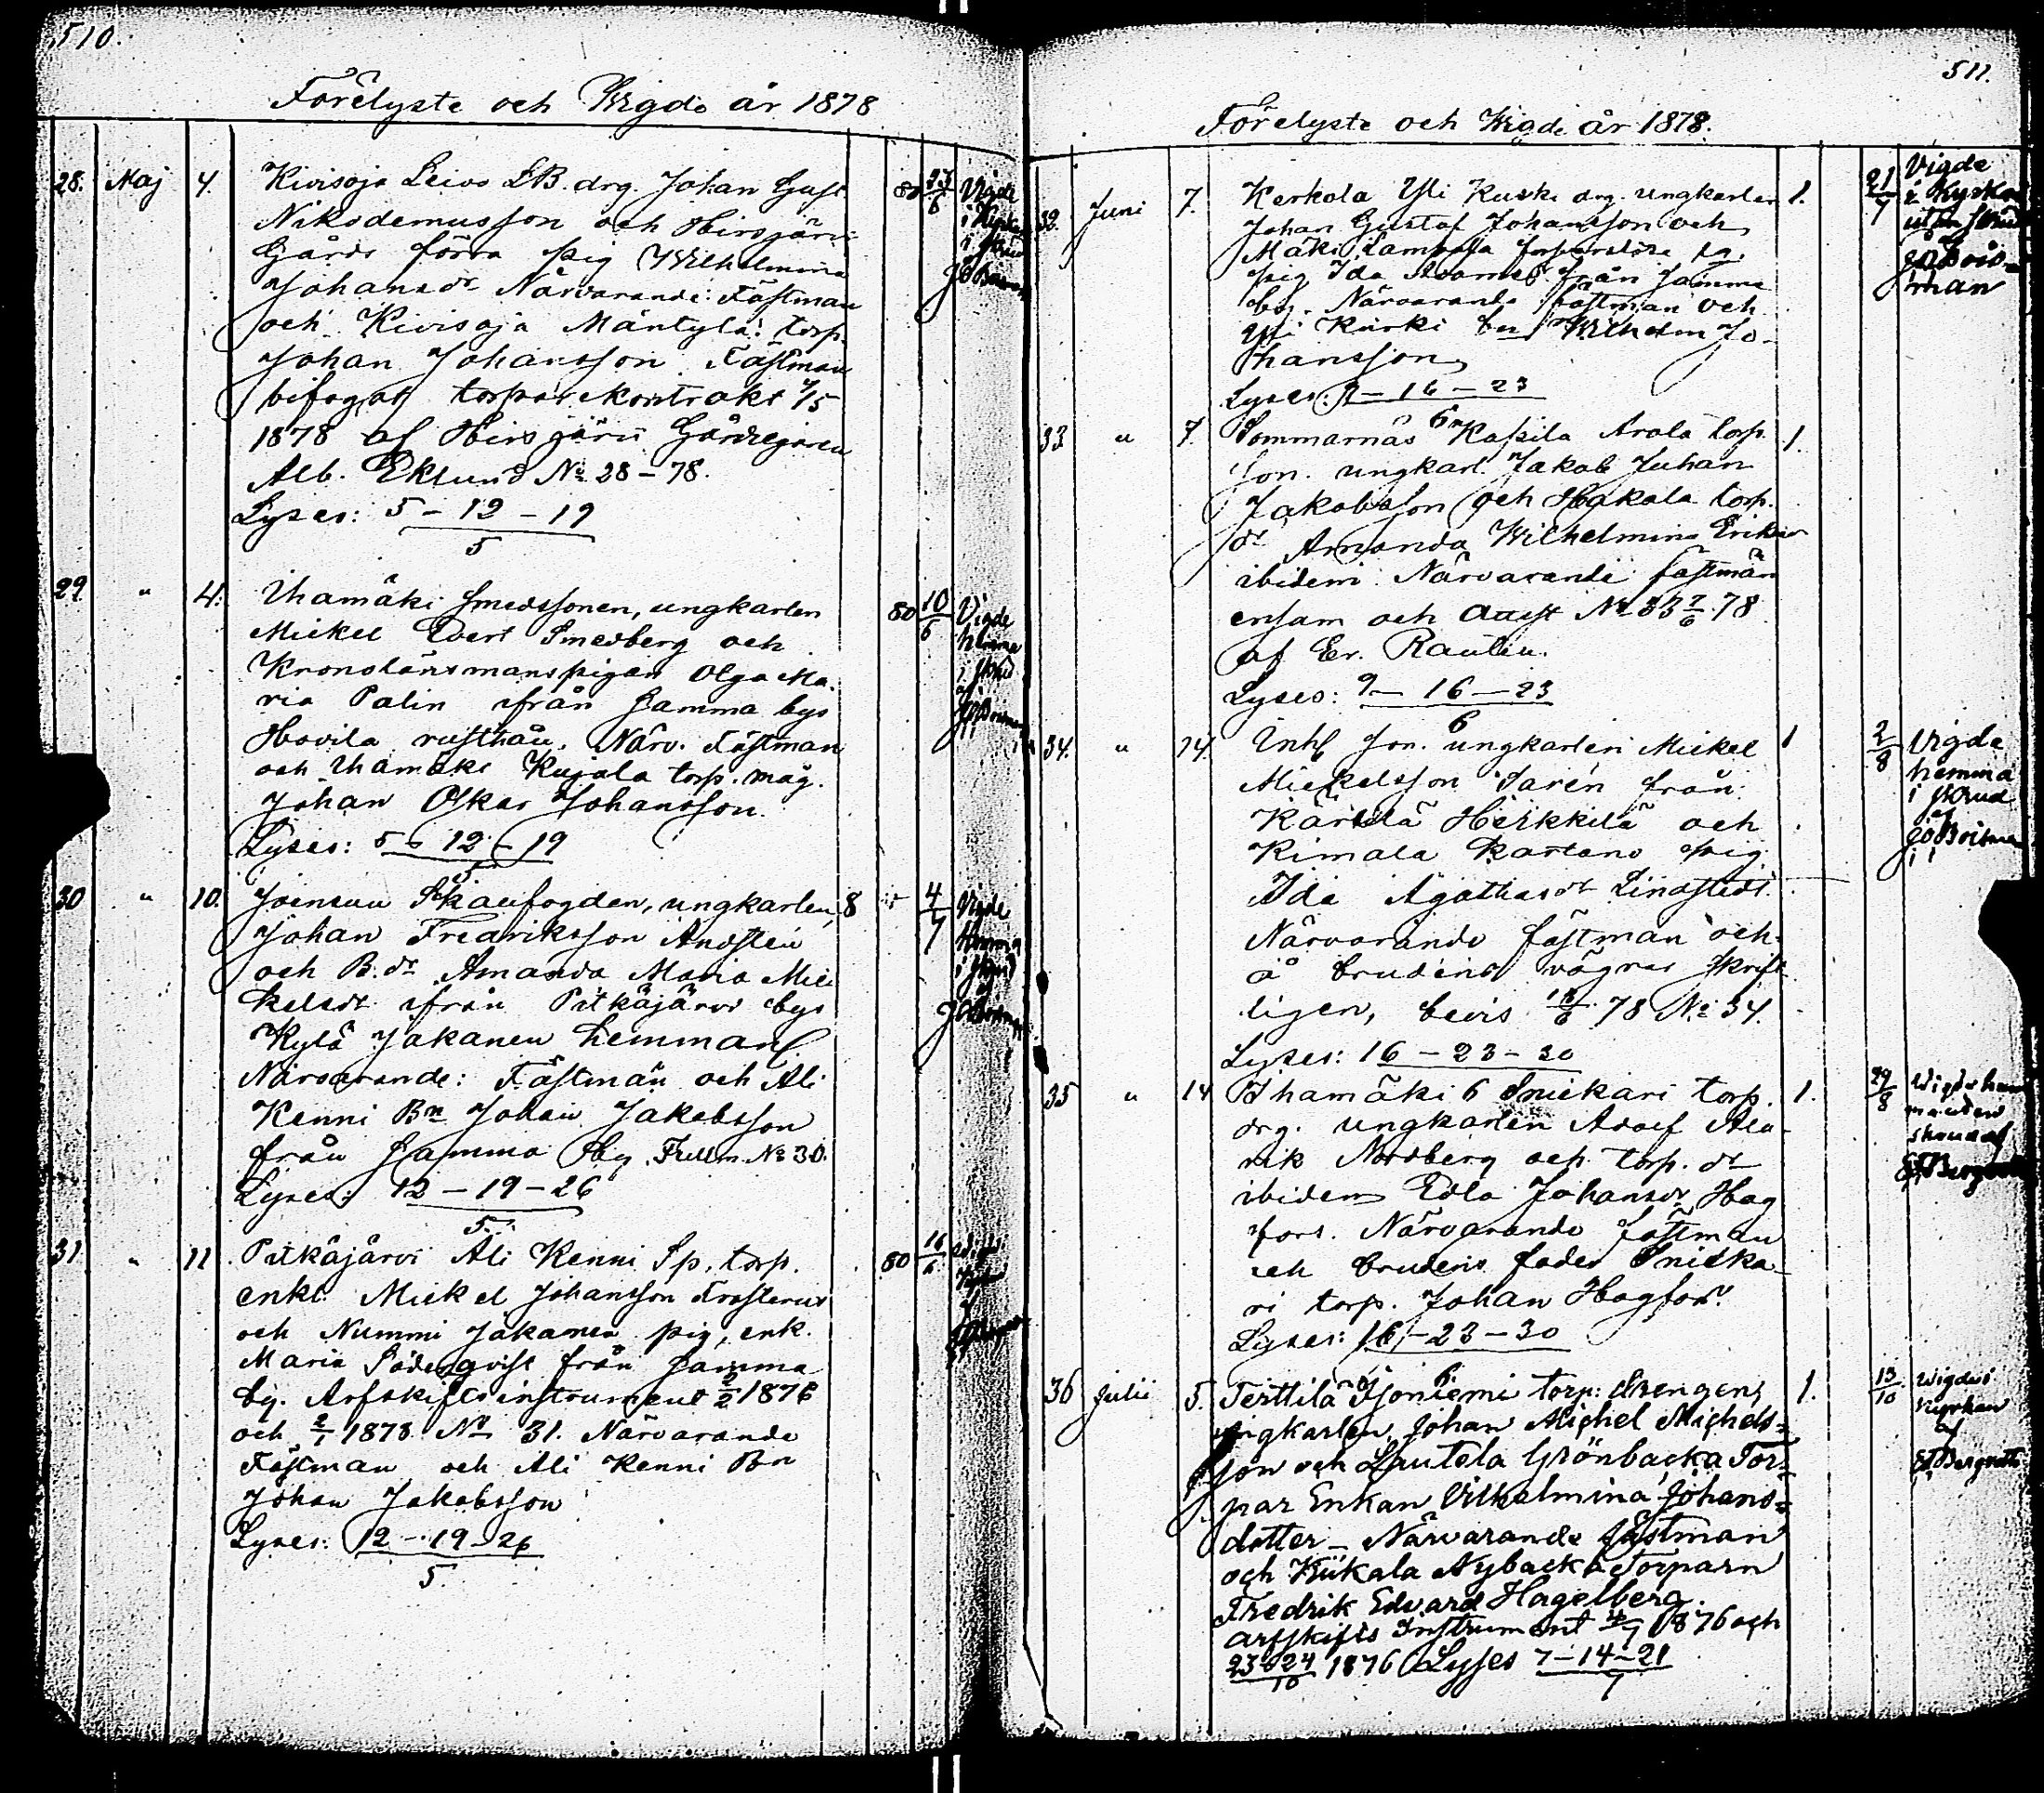 510.
Förelyste och Wigde år 1878
28. Maj 4. Kivisoja Leivo LB. drg. Johan Gust.
Nikodemusson och Hirsjärvi
Gårds förra pig Wilhelmina
Johansdr Närvarande: Fästman
och Kivisoja Mäntylä torp.
Johan Johansson. Fästman
bifogat torparekontrakt 4/5
1878 af Hirsjärvi Gårdsegaren
Alb. Eklund No 28-78.
Lyses: 5 - 12 - 19
5
80
Vigde
i Kyrkan
i skrud
29. " 4. Ihamäki smedssonen, ungkarlen
Mickel Evert Smedberg och
Kronolänsmanspigan Olga Ma-
ria Palin ifrån samma bys
Hovila rusthåll. Närv. Fästman
och Ihamäki Kujala torp. måg.
Johan Oskar Johansson.
Lyses: 5 - 12 - 19
5
80 10/6 Vigde
hemma
i skrud
af
30 " 10. Joensuu Skaufogden, ungkarlen
Johan Fredriksson Andsten
och B. dr Amanda Maria Mic-
kelsdr ifrån Pitkäjärvi bys
Kylä Jakanen hemman.
Närvarande: Fästman och Ali
Kenni Bn Johan Jakobsson
från samma by. Fullm. No 30.
Lyses: 12 - 19 - 26
5.
8 4/7 Vigde
hemma
i skrud
31. " 11. Pitkäjärvi Ali Kenni Sp. torp.
enkl. Mickel Johansson Frosterus
och Nummi Jakanen pig, enk.
Maria Söderqvist från samma
by. Arfskiftesinstrument 2/2 1876
och 2/1 1878 No 31. Närvarande
Fästman och Ali Kenni Bn
Johan Jakobsson
Lyses: 12 - 19 - 26
5.
80 16/6
511.
Förelyste och Wigde år 1878.
32. Juni 7. Kerkola Yli Kurki drg. ungkarlen
Johan Gustaf Johansson och
Mäki Lampola
pig Ida Adamsdr från samma
by. Närvarande fästman och
Yli Kurki Bn Wilhelm Jo-
hansson
Lyses: 9 - 16 - 23
6
1. 21/7 Vigde
i Kyrkan
utan skrud
af
JO Bois-
man
33 " 7. Sommarnäs Kapila Arola torp.
son. ungkarl. Jakob Juhan
Jakobsson och Hakala torp.
dr Amanda Wilhelmina Eriksdr
ibidem. Närvarande fästman
ensam och attest No 33 7/6 78
af Er. Rautell.
Lyses: 9 - 16 - 23
6
1.
34. " 14. Inh. son. ungkarlen Mickel
Mickelsson Sarén från
Kärkelä Heikkilä och
Kimala Kartano pig
Ida Agathasdr Lindstedt.
Närvarande fästman och
å brudens vägnar skrift-
ligen, bevis 78 No 34.
Lyses: 16 - 23 - 30
1 2/8 Vigde
hemma
i skrud
af
JO Boisman
35 " 14 Ihamäki 6 Snickari torp.
drg. ungkarlen Adolf Ala-
rik Nordberg och torp. dr
ibidem Edla Johansdr Hag
fors. Närvarande fästman
och brudens fader Snicka-
ri torp. Johan Hagfors.
Lyses: 16 - 23 - 30
6
1. 29/8
36 Julii 5. Terttilä Isoniemi torp: drengen,
ungkarlen, Johan Michel Michels-
son och Lautela Grönbacka Tor-
par Enkan Vilhelmina Johans-
dotter - Närvarande fästman
och Kiikala Nybacka Torparn
Fredrik Edvard Hagelberg.
arfskifts Instrument 4/7 1876 och
23 24/10 1876 Lyses 7-14-21
7
1. 13/10 Wigde i
Kyrkan
af